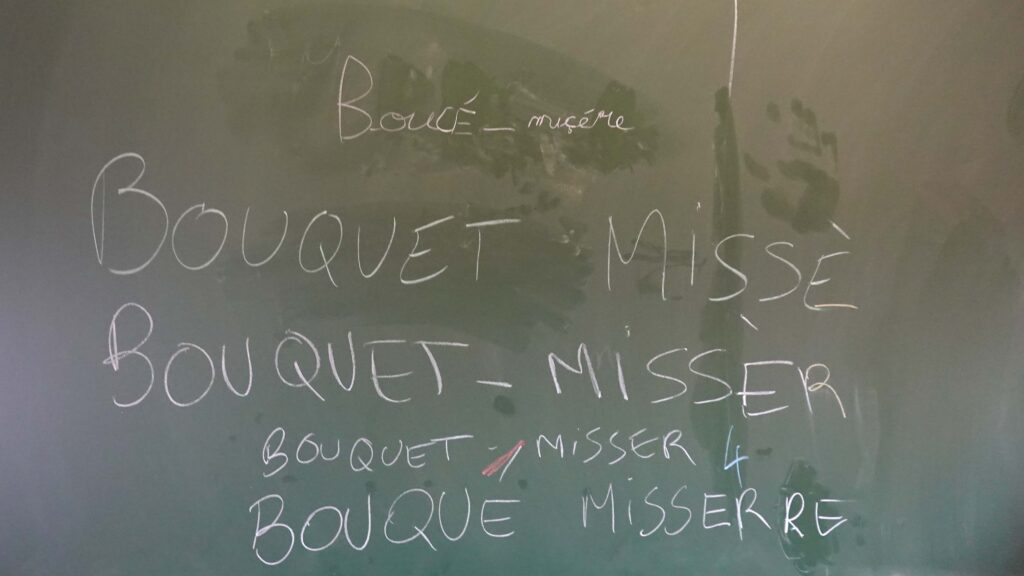 BOUCÉ - miçére
BOUQUET MiSSÈ
BOUQUET - MiSSÈR
BOUQUET - MiSSER 4
BOUQUE MiSSERRE